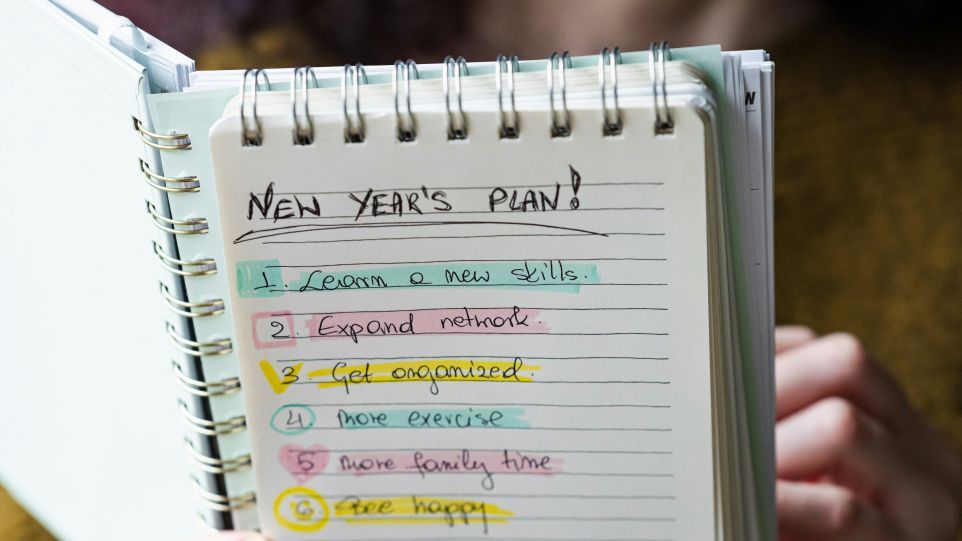 NEW YEAR'S PLAN!
1. Learn a new skills.
2. Expand network.
3. Get organized.
4 more exercise
5 more family time
6 Bee happy